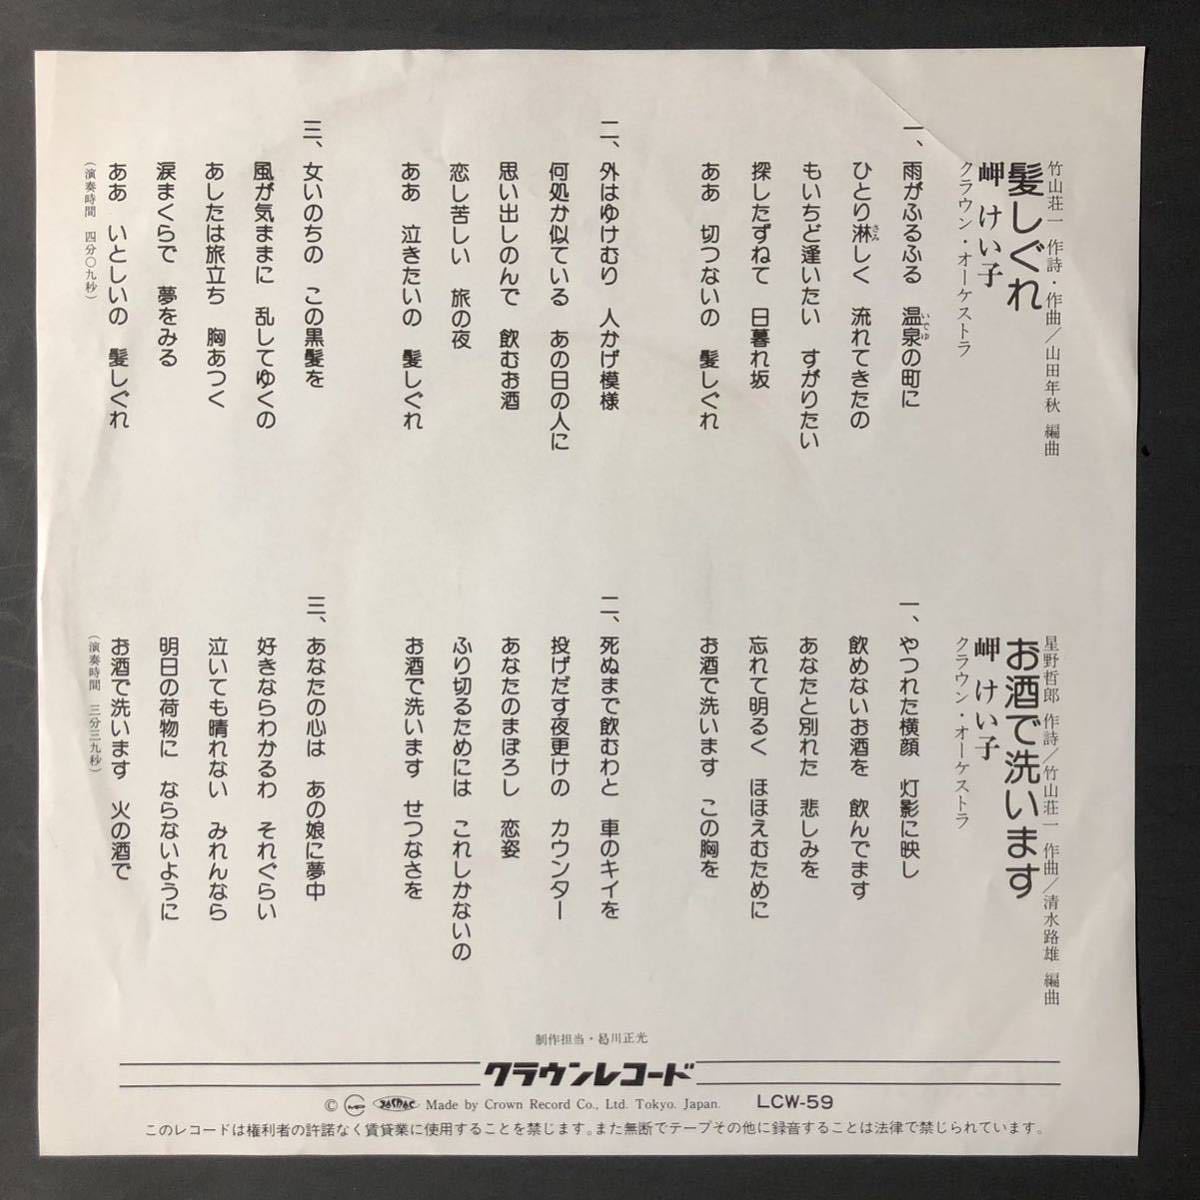 竹山荘一 作詩・作曲／山田年秋 編曲
髪しぐれ
岬 けい子
クラウン・オーケストラ
一、雨がふるふる 温泉の町に
いでゆ
ひとり淋しく 流れてきたの
さみ
もいちど逢いたい すがりたい
探したずねて 日暮れ坂
ああ 切つないの 髪しぐれ
二、外はゆけむり 人かげ模様
何処か似ている あの日の人に
思い出しのんで 飲むお酒
恋し苦しい 旅の夜
ああ 泣きたいの 髪しぐれ
三、女いのちの この黒髪を
風が気ままに 乱してゆくの
あしたは旅立ち 胸あつく
涙まくらで 夢をみる
ああ いとしいの 髪しぐれ
（演奏時間 四分〇九秒）
星野哲郎 作詩／竹山荘一 作曲／清水路雄 編曲
お酒で洗います
岬 けい子
クラウン・オーケストラ
一、やつれた横顔 灯影に映し
飲めないお酒を 飲んでます
あなたと別れた 悲しみを
忘れて明るく ほほえむために
お酒で洗います この胸を
二、死ぬまで飲むわと 車のキイを
投げだす夜更けの カウンター
あなたのまぼろし 恋姿
ふり切るためには これしかないの
お酒で洗います せつなさを
三、あなたの心は あの娘に夢中
好きならわかるわ それぐらい
泣いても晴れない みれんなら
明日の荷物に ならないように
お酒で洗います 火の酒で
（演奏時間 三分三九秒）
制作担当・曷川正光
クラウンレコード
© Made by Crown Record Co., Ltd. Tokyo. Japan. LCW-59
このレコードは権利者の許諾なく賃貸業に使用することを禁じます。また無断でテープその他に録音することは法律で禁じられています。